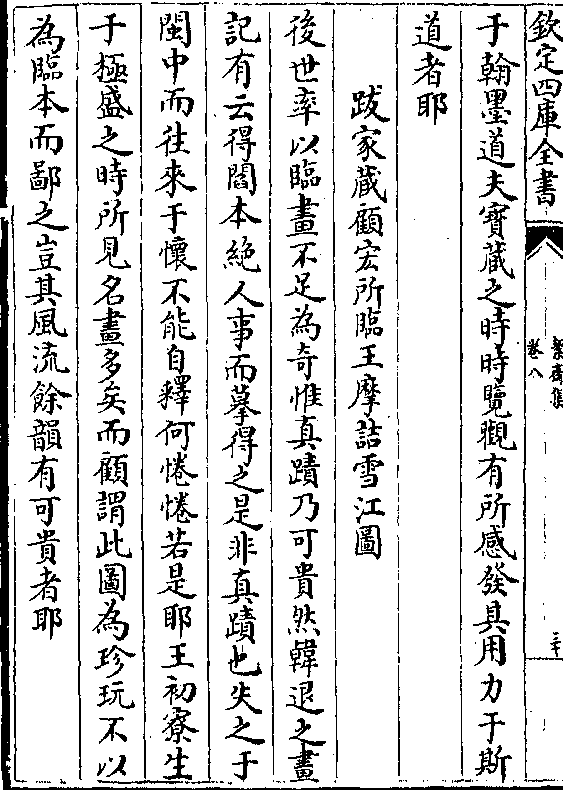 欽定四庫全書
卷八
于翰墨道夫寳蔵之時時覽觀有所感發其用力于斯
道者耶
跋家蔵顧宏所臨王摩詰雪江圖
後世率以臨畫不足為奇惟真蹟乃可貴然韓退之畫
記有云得閻本絶人事而摹得之是非真蹟也失之于
閩中而往來于懷不能自釋何惓惓若是耶王初寮生
于極盛之時所見名畫多矣而顧謂此圖為珍玩不以
為臨本而鄙之豈其風流餘韻有可貴者耶